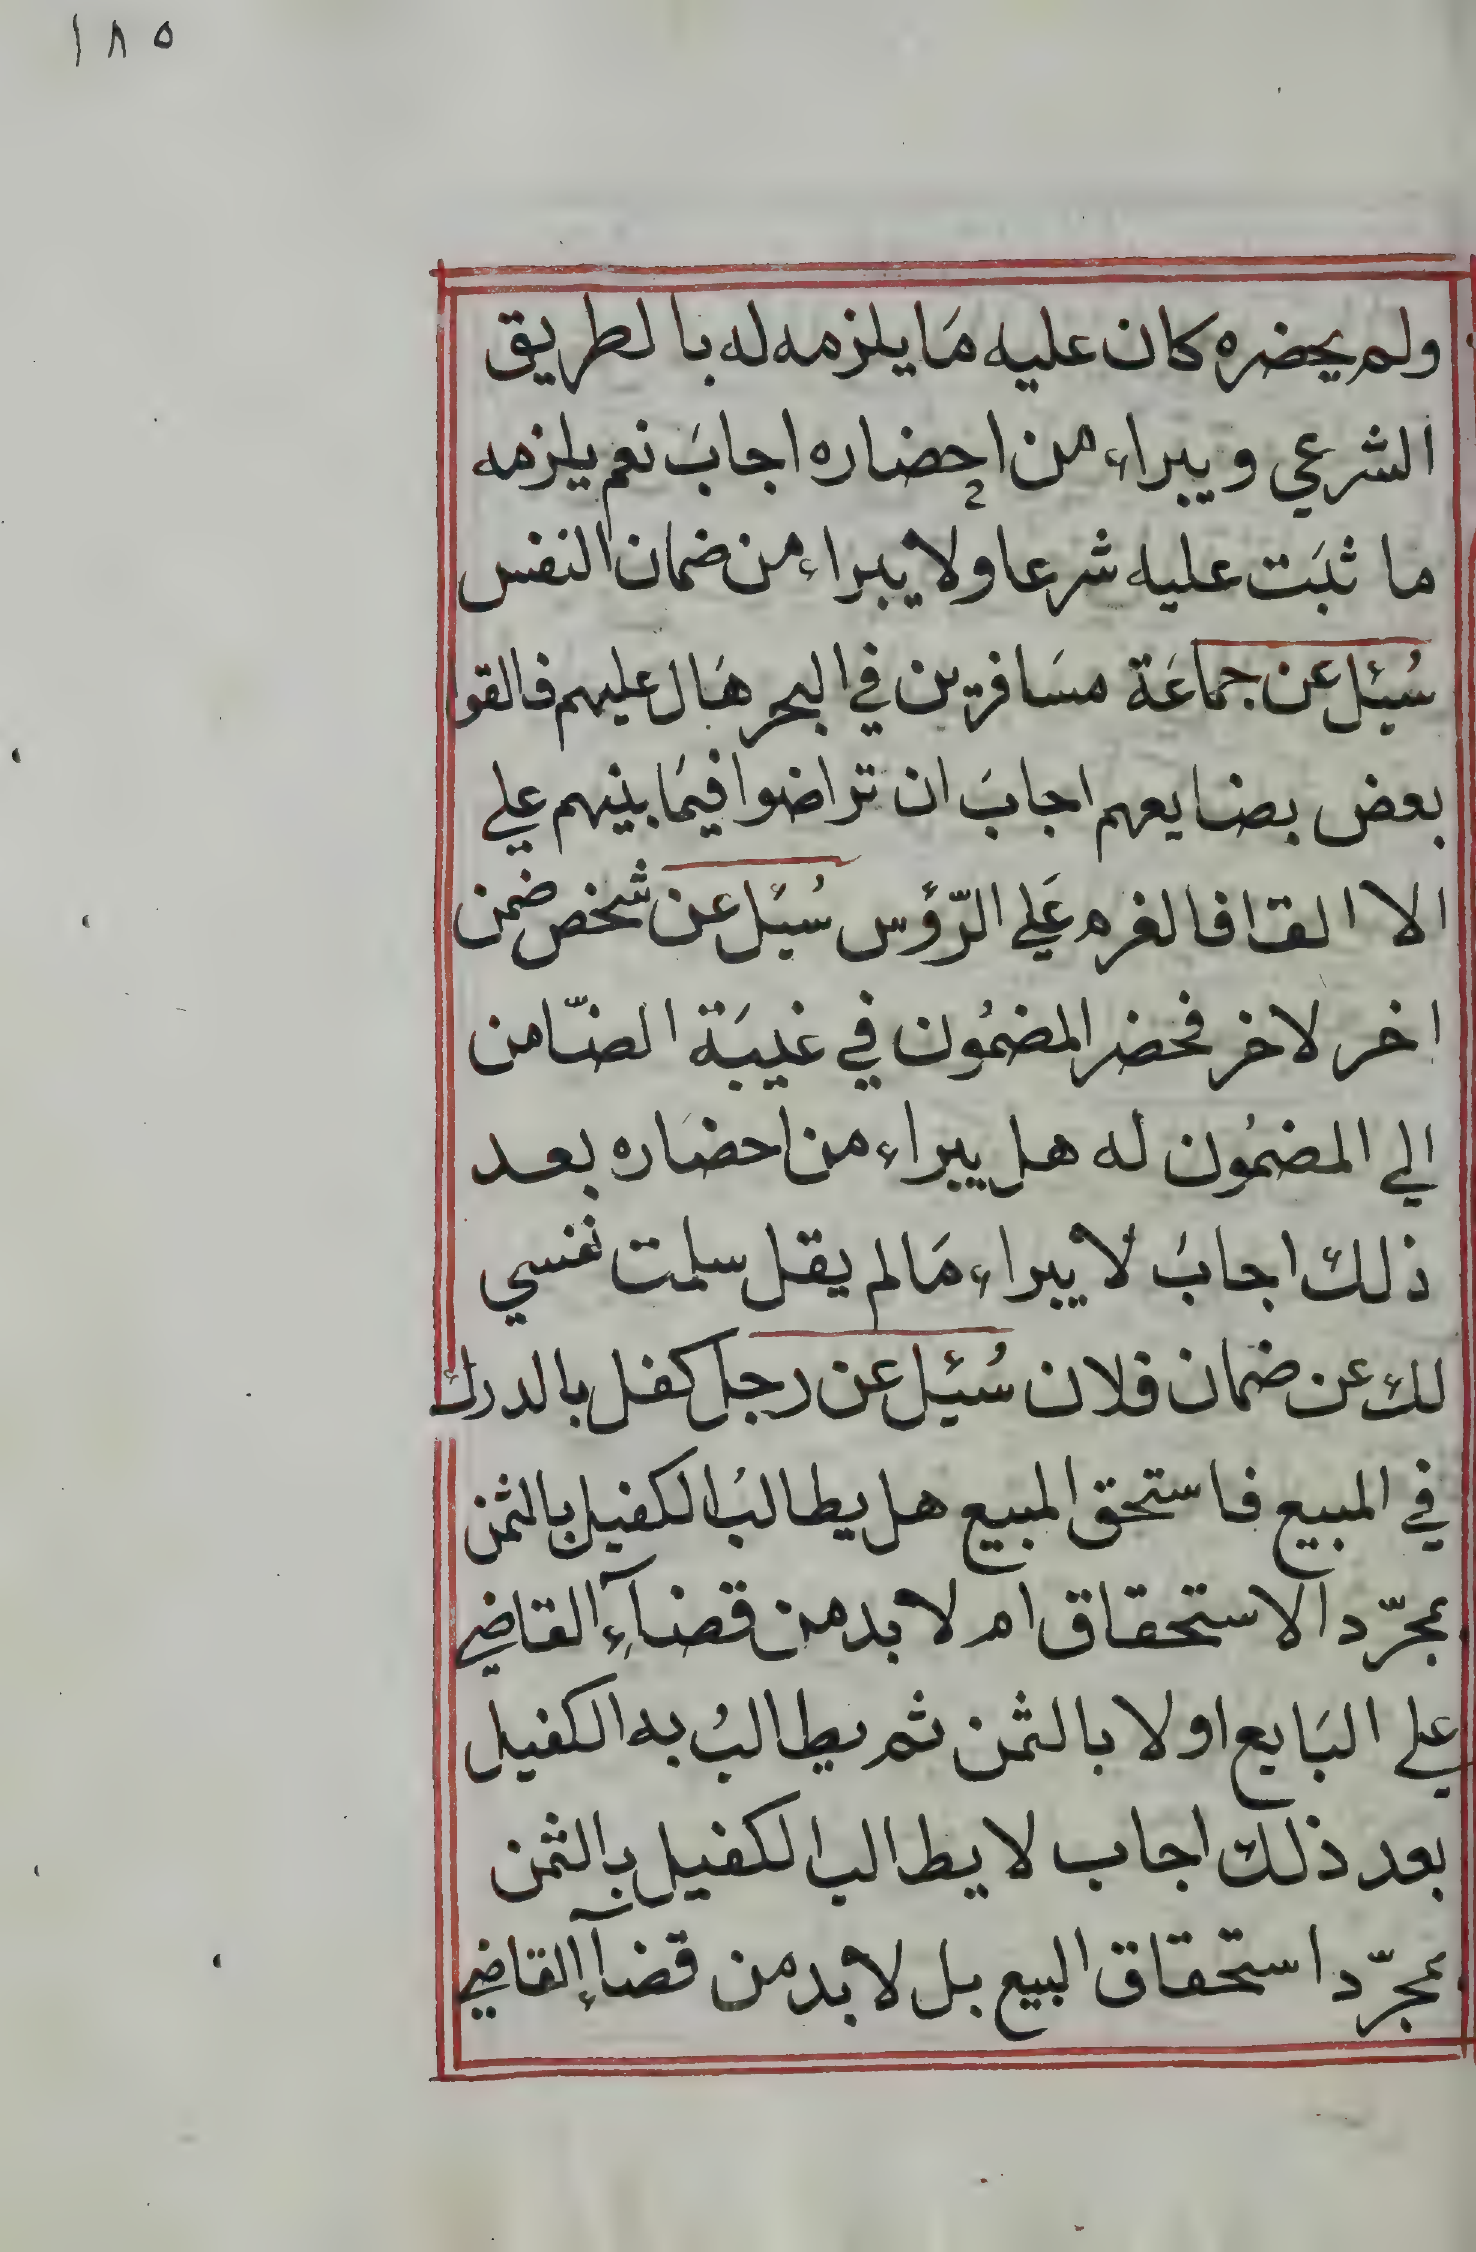 ١٨٥
ولم يحضره كان عليه مَا يلزمه له بالطريق
الشرعي ويبراء من احضاره اجابَ نعم يلزمه
ما ثبَت عليه شرعا ولا يبراء من ضمان النفس
سُئل عن جماعَة مسَافرين في البحر هَال عليهم فالقوا
بعض بضايعهم اجابَ ان تراضوا فيمَا بينهم علي
الا القا فالغرم عَلي الرّؤس سُئل عن شخص ضمن
اخر لاخر فحضر المضمُون في غيبَة الضّامن
الي المضمُون له هل يبراء من احضَاره بعد
ذلك اجابَ لا يبراء مَالم يقل سلمت نفسي
لك عن ضمان فلان سُئل عن رجل كفل بالدرك
في المبيع فاستحق المبيع هل يطالبُ الكفيل بالثمن
بمجرّد الاستحقاق ام لا بد من قضآء القاضي
علي البَايع اولا بالثمن ثم يطالبُ به الكفيل
بعد ذلك اجاب لا يطالب الكفيل بالثمن
بمجرّد استحقاق البيع بل لا بد من قضآء القاضي